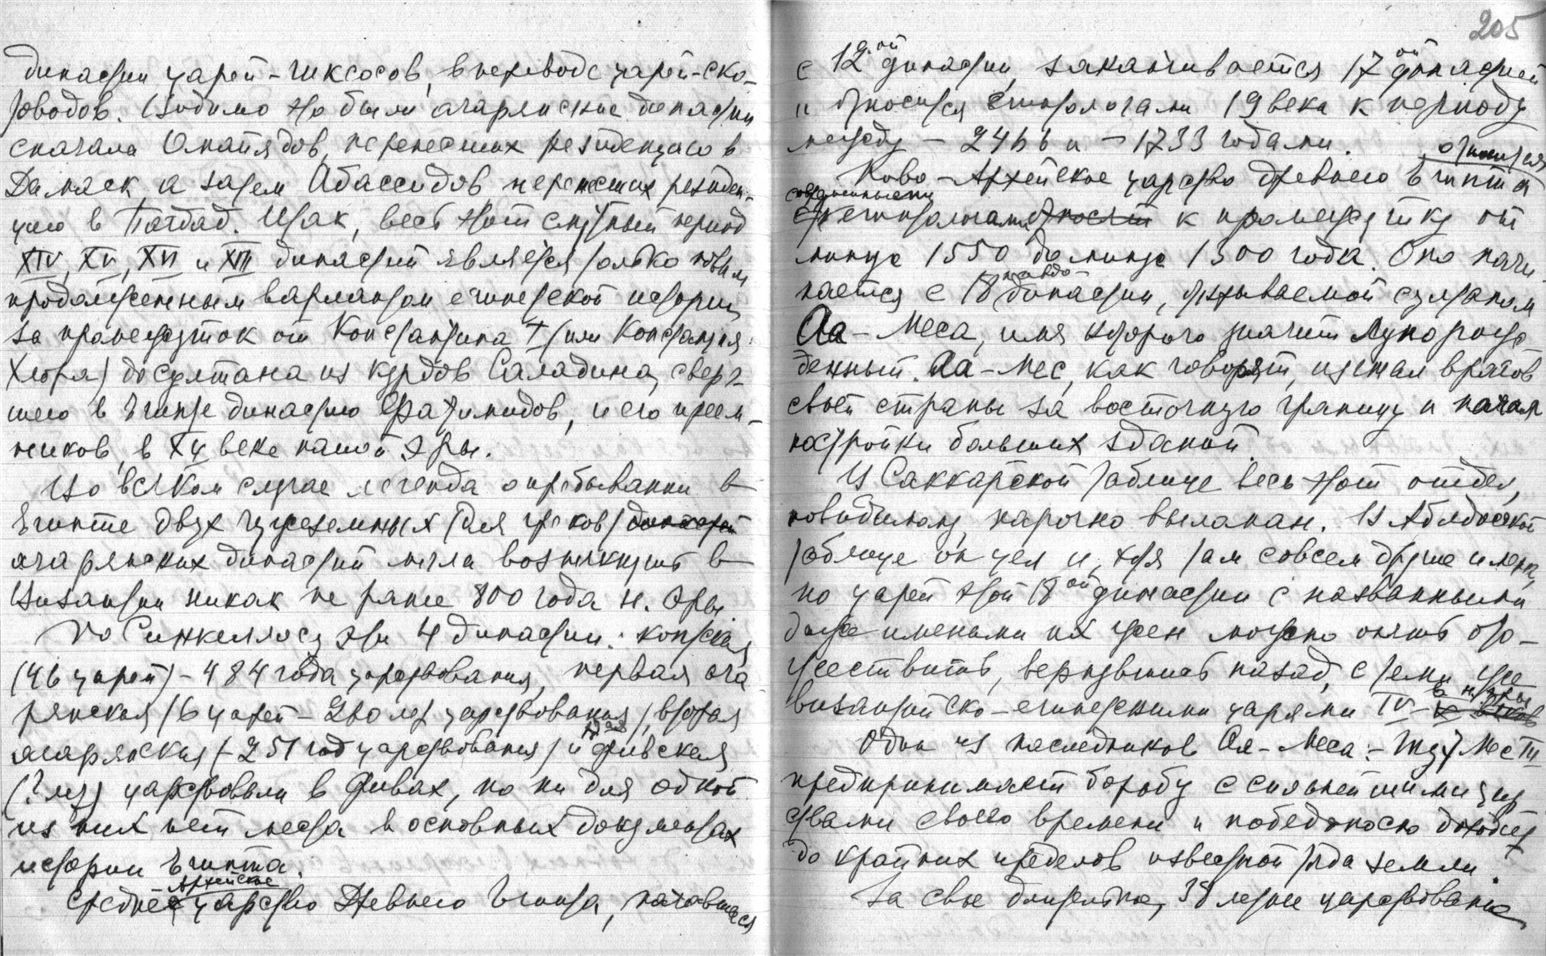 династии царей-гиксосов, в переводе царей-ско-
товодов. Видимо это были агарянские династии
сначала Омайядов, перенесших резиденцию в
Дамаск а затем Абассидов перенесших резиден-
цию в Багдад. Итак, весь этот смутный период
XIV, XV, XVI и XVII династий является только новым
продолженным вариантом египетской истории
за промежуток от Константина I (или Констанция
Хлора) до султана из курдов Саладина, сверг-
шего в Египте династию Фатимидов, и его преем-
ников, в XII веке нашей эры.
Во всяком случае легенда о пребывании в
Египте двух чужеземных (для греков) династий
агарянских династий могла возникнуть в
Византии никак не ранее 800 года н. эры
По Синкеллосу эти 4 династии: коптская
(46 царей) - 484 года царствования, первая ага-
рянская (6 царей - царствования) вторая
агарянская (- 251 год царствования) и фивская
(? лет) царствовали в Фивах, но ни для одной
из них нет места в основных документах
истории Египта.
Средне-Архейское царство Древнего Египта, начавшееся
205
с 12ой династии, заканчивается 17ой династией
и относится египтологами 19 века к периоду
между - 2466 и - 1733 годами.
Ново-Архейское царство древнего Египта относится
египтологами относят к промежутку от
минус 1550 до минус 1300 года. Оно начи-
нается с 18 династии, открываемой султаном
Аа-Меса, имя которого значит Лунорож-
денный. Аа-Мес, как говорят, изгнал врагов
своей страны за восточную границу и начал
постройки больших зданий.
В Саккарской таблице весь этот отдел,
повидимому, нарочно выломан. В Абидосской
таблице он цел и, хотя там совсем другие имена,
но царей этой 18ой династии с названными
даже именами их жен можно опять ото-
жествить, вернувшись назад, с теми же
византийско-египетскими царями IV - в. н. эры
Один из наследников Аа-Меса - Тут Мес III
предпринимает борьбу с сильнейшими цар-
ствами своего времени и победоносно доходит
до крайних пределов известной тогда земли.
За свое длительное, 38 летнее царствование